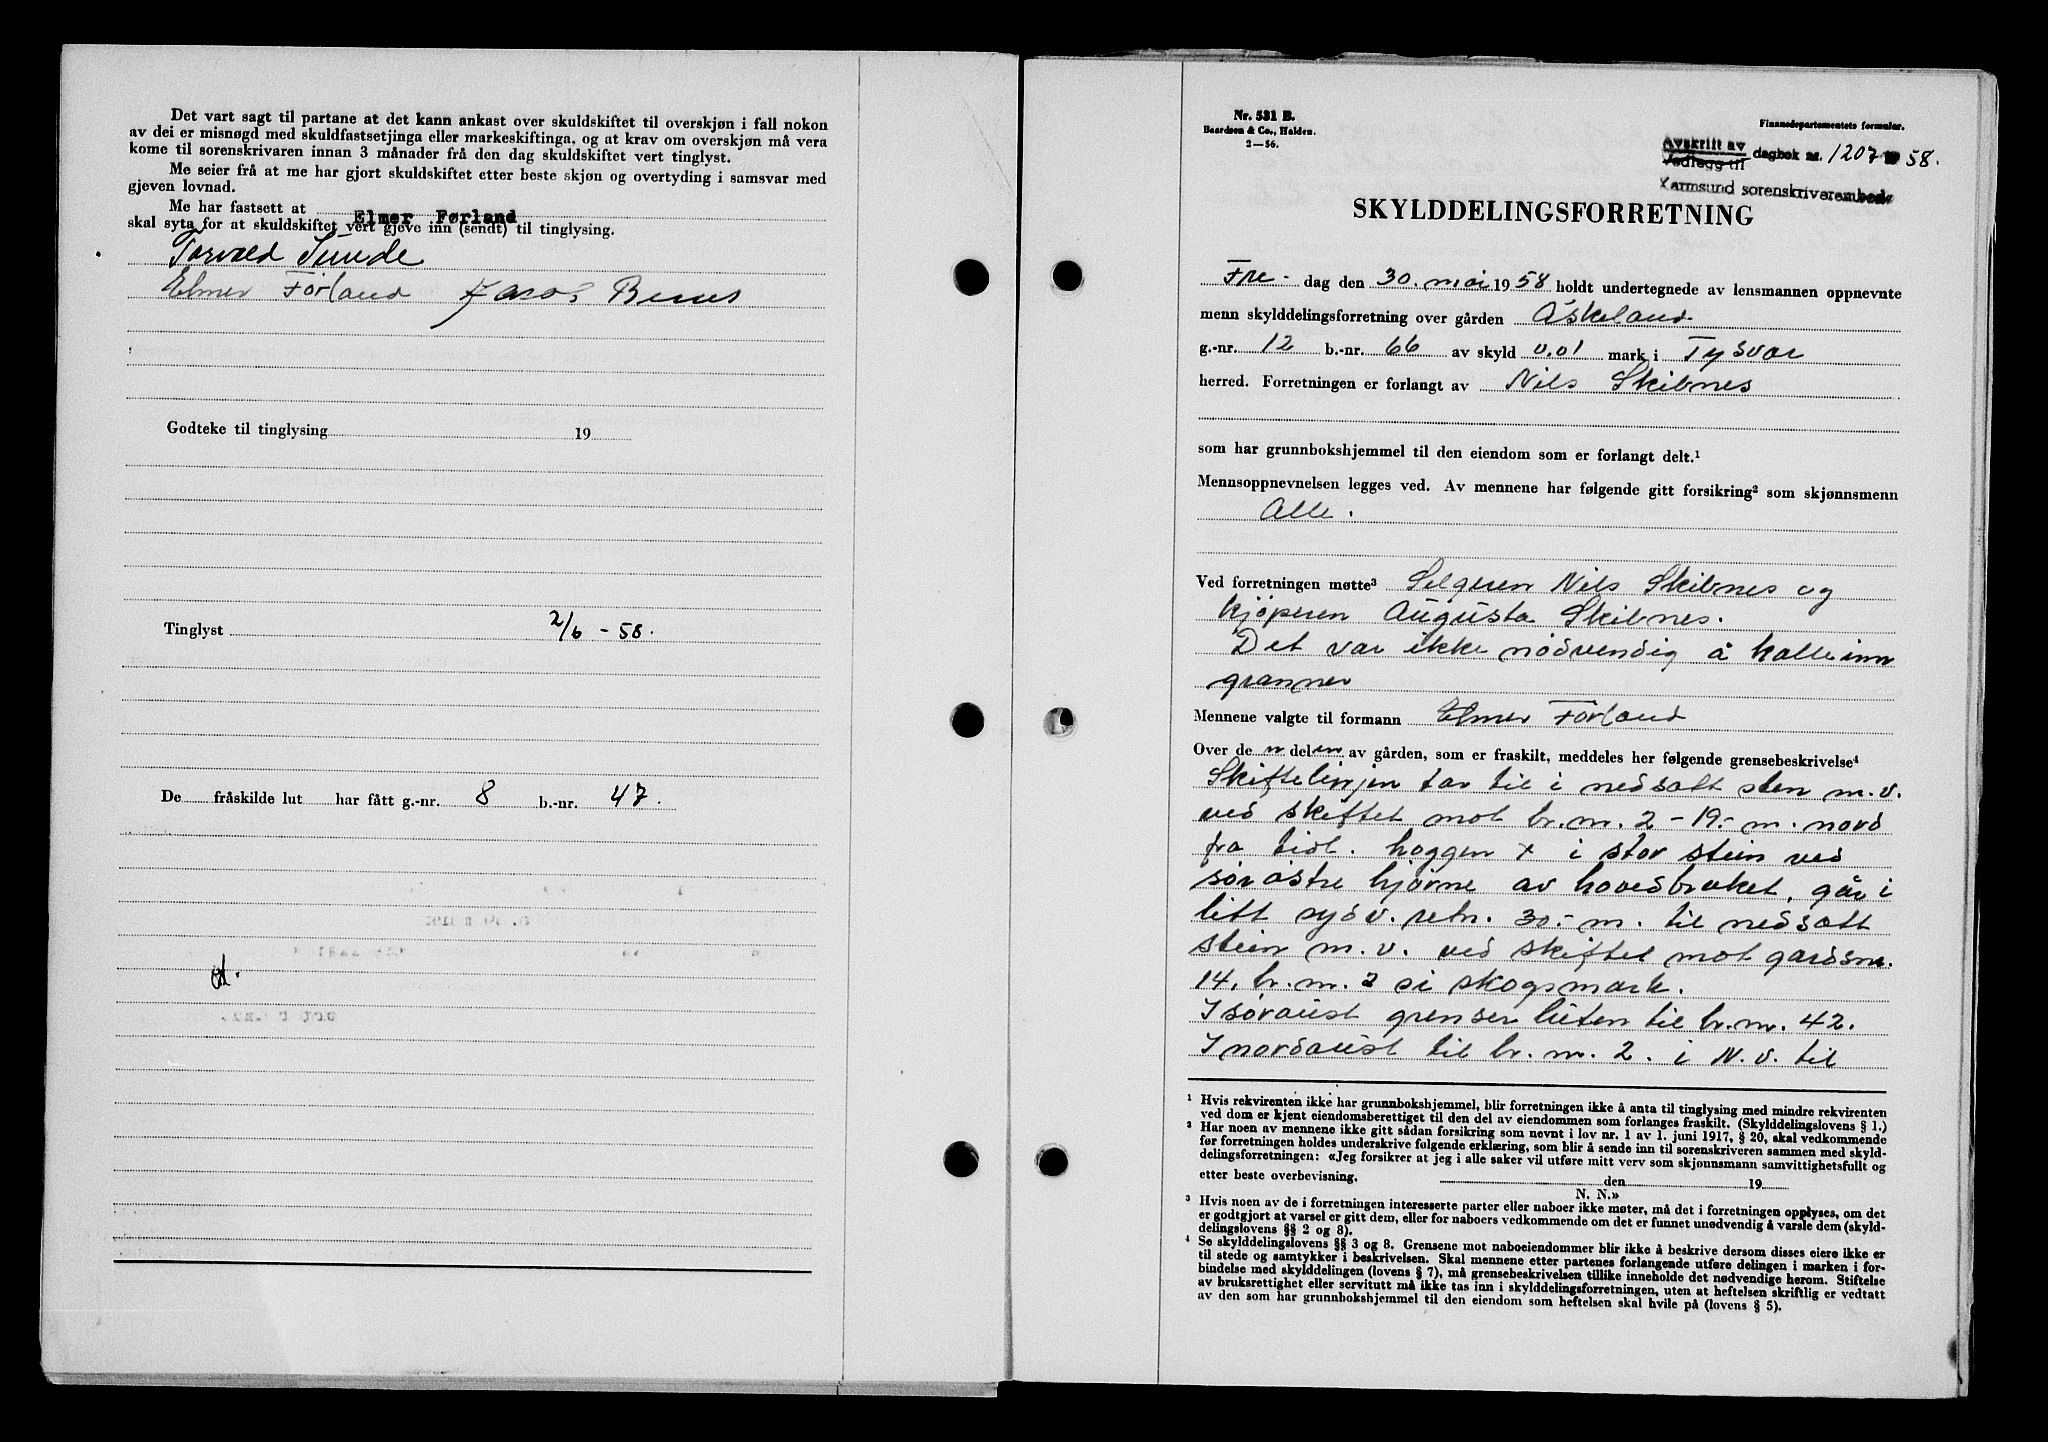 Det vart sagt til partane at det kann ankast over skuldskiftet til overskjøn i fall nokon
av dei er misnøgd med skuldfastsetjinga eller markeskiftinga, og at krav om overskjøn må vera
kome til sorenskrivaren innan 3 månader frå den dag skuldskiftet vert tinglyst.
Me seier frå at me har gjort skuldskiftet etter beste skjøn og overtyding i samsvar med
gjeven lovnad.
Me har fastsett at Elmer Førland
skal syta for at skuldskiftet vert gjeve inn (sendt) til tinglysing.
Torvald Sunde
Elmer Førland
Godteke til tinglysing 19
Tinglyst 2/6 - 58.
De fråskilde lut har fått g.-nr. 8 b.-nr. 47.
Nr. 531 B.
Baardsen & Co., Halden.
2—56.
Finansdepartementets formular.
Avskrift av
Vedlegg til dagbok nr. 1207 19 58.
Karmsund sorenskriverembede
SKYLDDELINGSFORRETNING
Fre- dag den 30. mai 1958 holdt undertegnede av lensmannen oppnevnte
menn skylddelingsforretning over gården Åskeland
g.-nr. 12 b.-nr. 66 av skyld 0.01 mark i Tysvær
herred. Forretningen er forlangt av Nils Skibnes
som har grunnbokshjemmel til den eiendom som er forlangt delt.¹
Mennsoppnevnelsen legges ved. Av mennene har følgende gitt forsikring² som skjønnsmenn
Alle.
Ved forretningen møtte³ Selgeren Nils Skibnes og
kjøperen Augusta Skibnes.
Det var ikke nødvendig å kalle inn
granner
Mennene valgte til formann Elmer Førland
Over de n delen av gården, som er fraskilt, meddeles her følgende grensebeskrivelse⁴
Skiftelinjen tar til i nedsatt sten m.v.
ved skiftet mot br.nr. 2 - 19.- m. nord
fra tidl. hoggen x i stor stein ved
sørøstre hjørne av hovedbruket, går i
litt sydv. retn. 30.- m. til nedsatt
stein m.v. ved skiftet mot gardsnr.
14, br.nr. 2 si skogsmark.
I søraust grenser luten til br.nr. 42.
I nordaust til br.nr. 2. i N.v. til
¹ Hvis rekvirenten ikke har grunnbokshjemmel, blir forretningen ikke å anta til tinglysing med mindre rekvirenten
ved dom er kjent eiendomsberettiget til den del av eiendommen som forlanges fraskilt. (Skylddelingslovens § 1.)
² Har noen av mennene ikke gitt sådan forsikring som nevnt i lov nr. 1 av 1. juni 1917, § 20, skal vedkommende
før forretningen holdes underskrive følgende erklæring, som blir å sende inn til sorenskriveren sammen med skyld-
delingsforretningen: «Jeg forsikrer at jeg i alle saker vil utføre mitt verv som skjønnsmann samvittighetsfullt og
etter beste overbevisning. den 19
N. N.»
³ Hvis noen av de i forretningen interesserte parter eller naboer ikke møter, må det i forretningen opplyses, om det
er godtgjort at varsel er gitt dem, eller for naboers vedkommende om det er funnet unødvendig å varsle dem (skyld-
delingslovens §§ 2 og 8).
⁴ Se skylddelingslovens §§ 3 og 8. Grensene mot naboeiendommer blir ikke å beskrive dersom disses eiere ikke er
til stede og samtykker i beskrivelsen. Skal mennene etter partenes forlangende utføre delingen i marken i for-
bindelse med skylddelingen (lovens § 7), må grensebeskrivelsen tillike inneholde det nødvendige herom. Stiftelse
av bruksrettighet eller servitutt må ikke tas inn i skylddelingsforretningen, uten at heftelsen skriftlig er vedtatt
av den som har grunnbokshjemmel til den eiendom som heftelsen skal hvile på (lovens § 5).